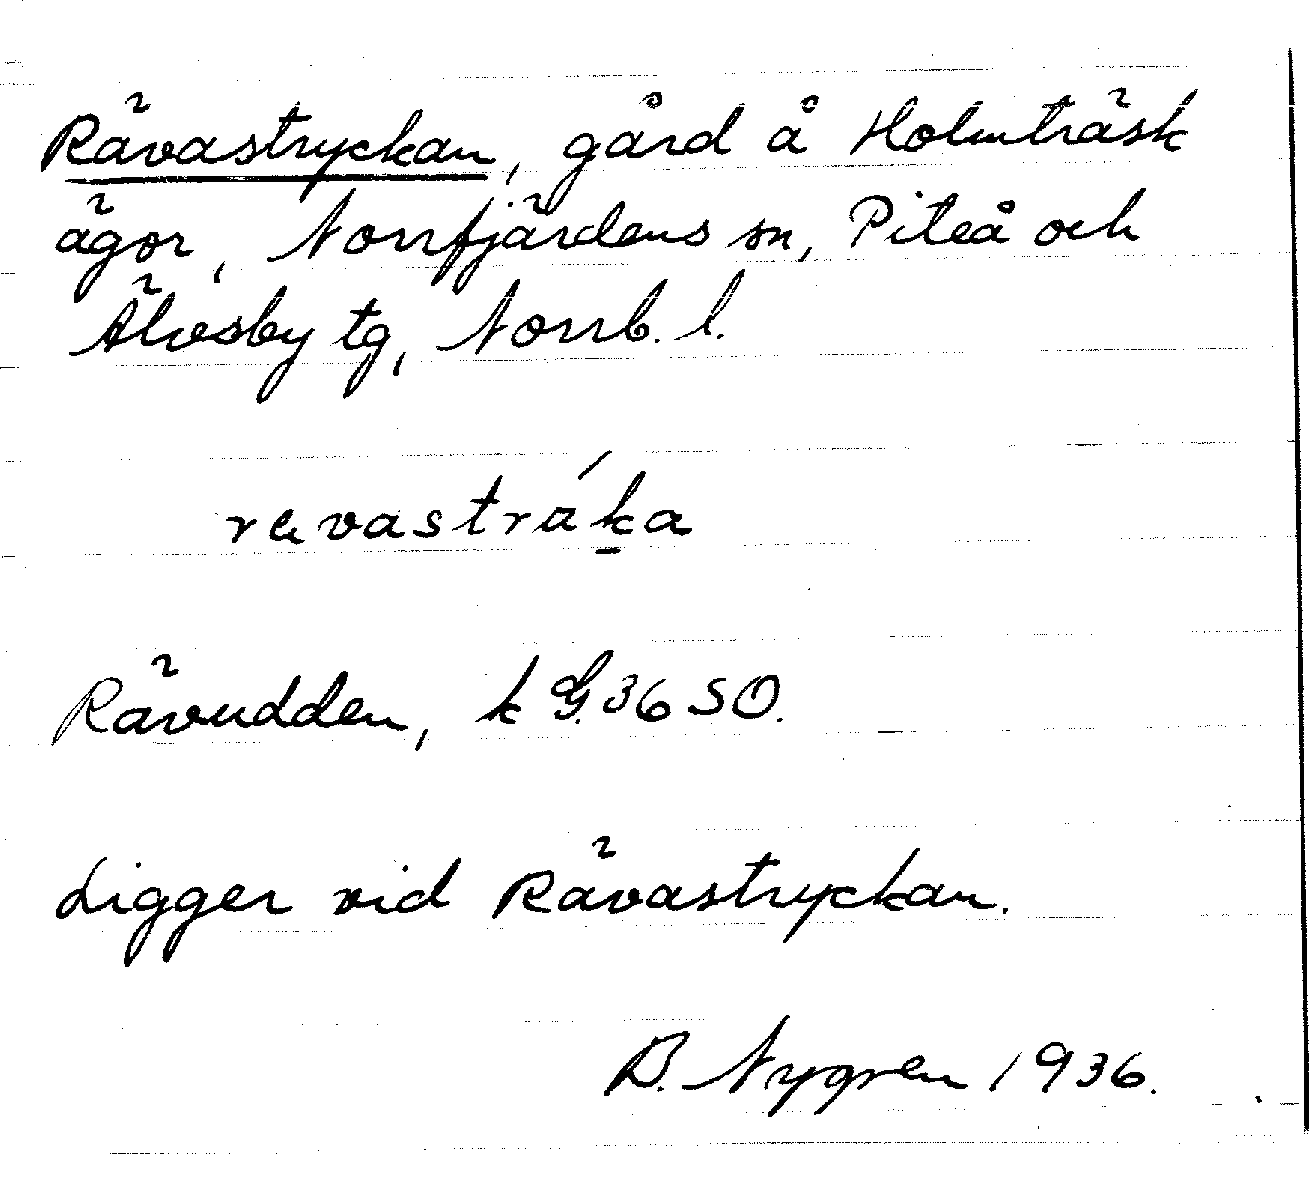 Rävastryckan, gård å Holmträsk
ägor, Norrfjärdens sn, Piteå och
Älvsby tg, Norrb. l.
Rävudden, k G. 36 SO.
Ligger vid Rävastryckan.
B. Nygren 1936.